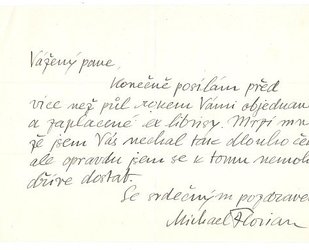 Vážený pane,
Konečně posílám před
více než půl rokem Vámi objednan
a zaplacené ex librisy. Mrzí mn
že jsem Vás nechal tak dlouho če
ale opravdu jsem se k tomu nemohl
dříve dostat.
Se srdečným pozdravem
Michael Florian